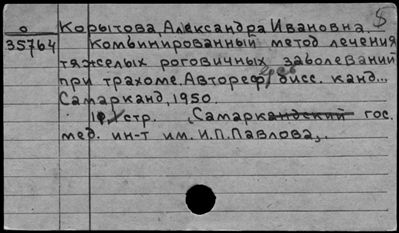 о Корытова, Александра Ивановна. 5
35764 Комбинированный метод лечения
тяжелых роговичных заболеваний
при трахоме. Автореф. дисс. канд...
Самарканд, 1950.
стр. Самаркандский гос.
мед. ин-т им. И.П.Павлова.